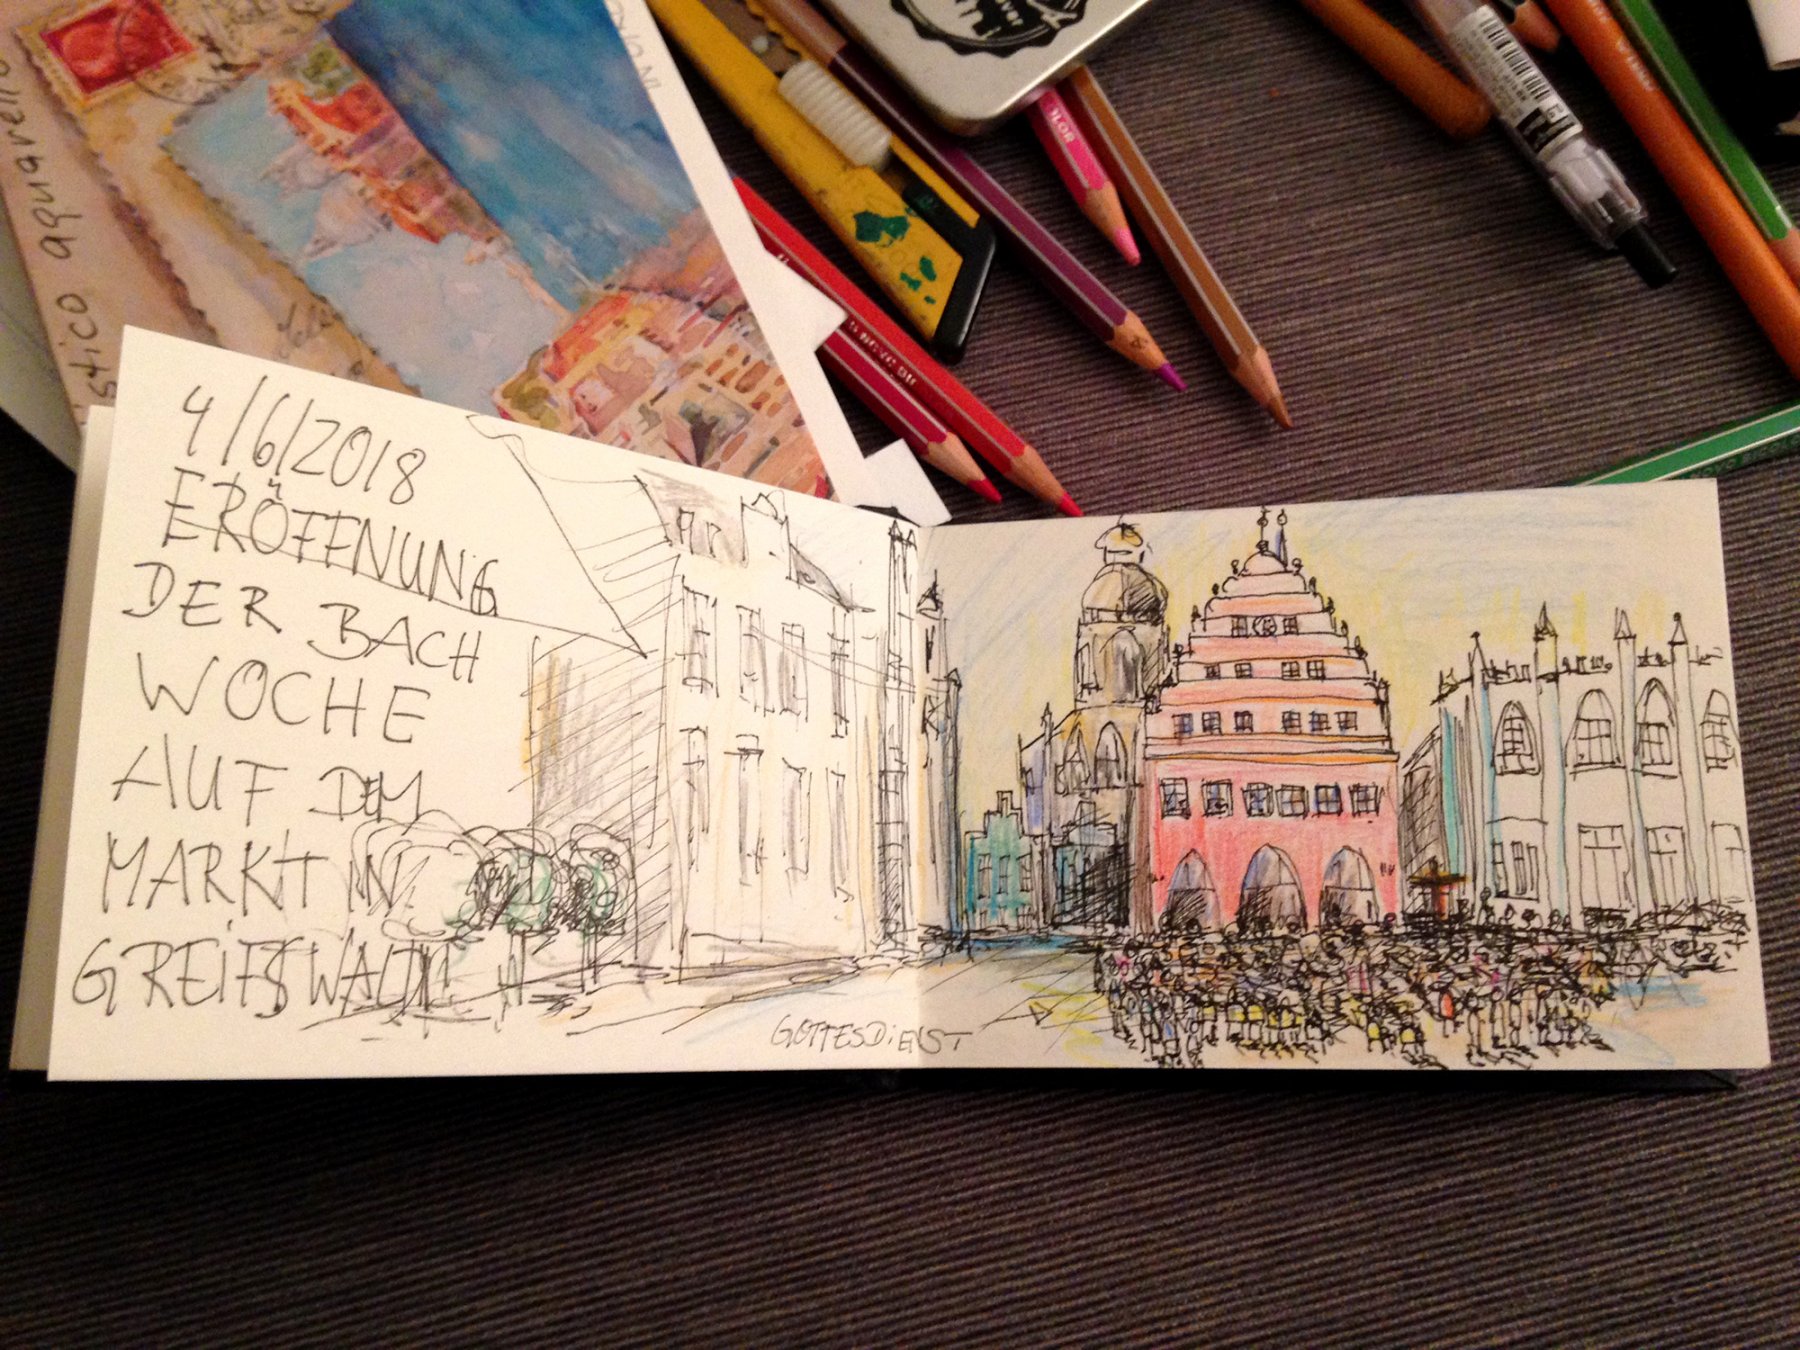 4/6/2018
ERÖFFNUNG
DER BACH
WOCHE
AUF DEM
MARKT IN
GREIFSWALD
GOTTESDIENST
stico aquarello